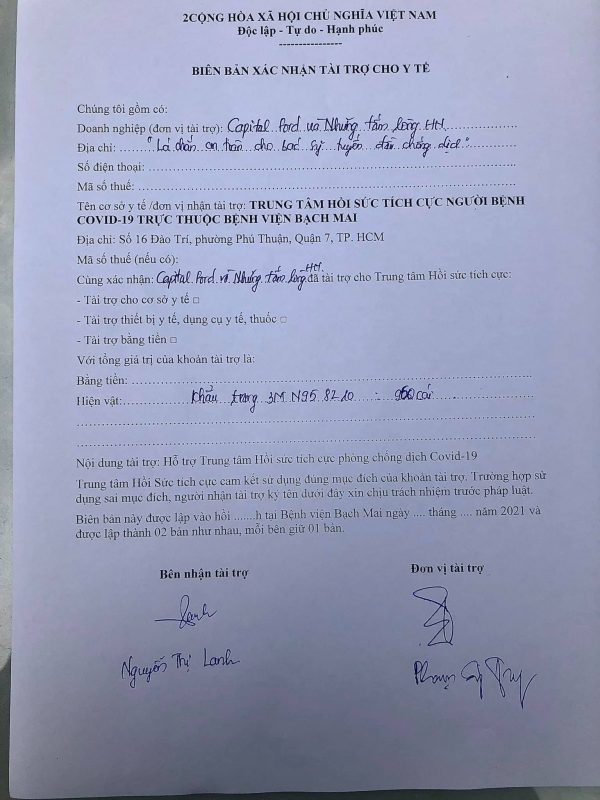 2CỘNG HÒA XÃ HỘI CHỦ NGHĨA VIỆT NAM
Độc lập - Tự do - Hạnh phúc
----------------
BIÊN BẢN XÁC NHẬN TÀI TRỢ CHO Y TẾ
Chúng tôi gồm có:
Doanh nghiệp (đơn vị tài trợ): Capital Ford và Những tấm lòng HN
Địa chỉ: "Lá chắn an toàn cho bác sỹ tuyến đầu chống dịch"
Số điện thoại:
Mã số thuế:
Tên cơ sở y tế /đơn vị nhận tài trợ: TRUNG TÂM HỒI SỨC TÍCH CỰC NGƯỜI BỆNH
COVID-19 TRỰC THUỘC BỆNH VIỆN BẠCH MAI
Địa chỉ: Số 16 Đào Trí, phường Phú Thuận, Quận 7, TP. HCM
Mã số thuế (nếu có):
Cùng xác nhận: Capital Ford và Những tấm lòng HN đã tài trợ cho Trung tâm Hồi sức tích cực:
- Tài trợ cho cơ sở y tế □
- Tài trợ thiết bị y tế, dụng cụ y tế, thuốc □
- Tài trợ bằng tiền □
Với tổng giá trị của khoản tài trợ là:
Bằng tiền:
Hiện vật: Khẩu trang 3M N95 8210 : 960 cái
Nội dung tài trợ: Hỗ trợ Trung tâm Hồi sức tích cực phòng chống dịch Covid-19
Trung tâm Hồi Sức tích cực cam kết sử dụng đúng mục đích của khoản tài trợ. Trường hợp sử
dụng sai mục đích, người nhận tài trợ ký tên dưới đây xin chịu trách nhiệm trước pháp luật.
Biên bản này được lập vào hồi .......h tại Bệnh viện Bạch Mai ngày .... tháng .... năm 2021 và
được lập thành 02 bản như nhau, mỗi bên giữ 01 bản.
Bên nhận tài trợ
Đơn vị tài trợ
Lanh
Nguyễn Thị Lanh
Phạm